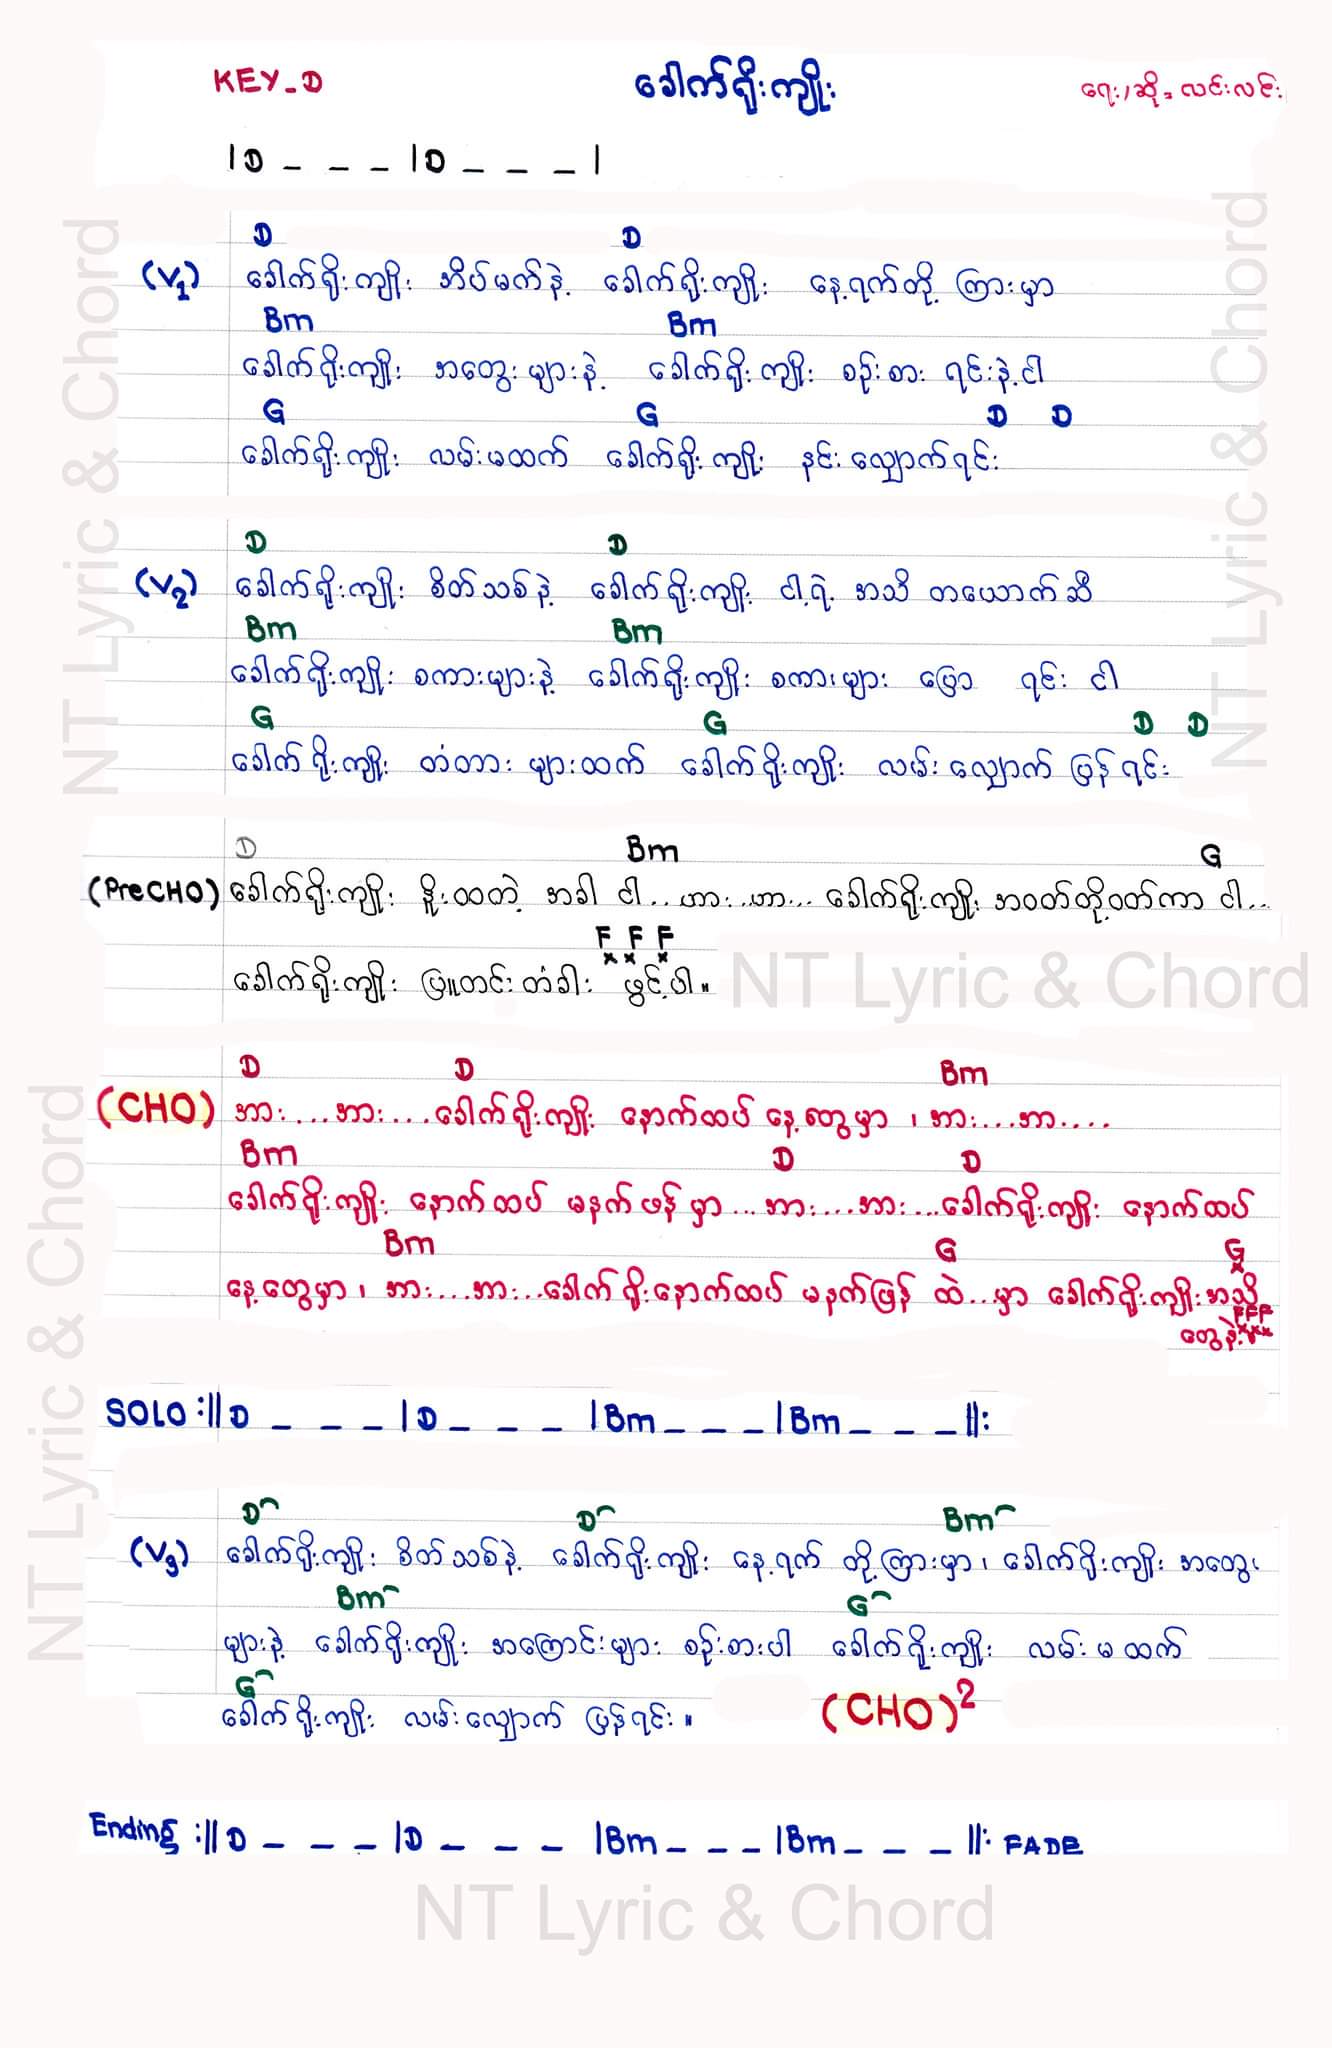 KEY-D
ခေါက်ရိုးကျိုး
ရေး/ဆို = လင်းလင်း
|D _ _ _ |D _ _ _ |
D D
(V1) ခေါက်ရိုးကျိုး အိပ်မက်နဲ့ ခေါက်ရိုးကျိုး နေ့ရက်တို့ ကြားမှာ
Bm Bm
ခေါက်ရိုးကျိုး အတွေးများနဲ့ ခေါက်ရိုးကျိုး စဉ်းစား ရင်းနဲ့ ငါ
G G D D
ခေါက်ရိုးကျိုး လမ်းမထက် ခေါက်ရိုးကျိုး နင်းလျှောက်ရင်း
D D
(V2) ခေါက်ရိုးကျိုး စိတ်သစ်နဲ့ ခေါက်ရိုးကျိုး ငါ့ရဲ့ အသိ တယောက်ဆီ
Bm Bm
ခေါက်ရိုးကျိုး စကားများနဲ့ ခေါက်ရိုးကျိုး စကားများ ပြော ရင်း ငါ
G G D D
ခေါက်ရိုးကျိုး တံတား များထက် ခေါက်ရိုးကျိုး လမ်းလျှောက် ပြန်ရင်း
D Bm G
(PreCHO) ခေါက်ရိုးကျိုး နိုးထတဲ့ အခါ ငါ..ဟား..ဟာ... ခေါက်ရိုးကျိုး အဝတ်တို့ဝတ်ကာ ငါ...
F F F
ခေါက်ရိုးကျိုး ပြူတင်းတံခါး ဖွင့်ပါ။
D D Bm
(CHO) အား....အား....ခေါက်ရိုးကျိုး နောက်ထပ် နေ့တွေမှာ ၊ အား...အာ....
Bm D D
ခေါက်ရိုးကျိုး နောက်ထပ် မနက်ဖန်မှာ...အား...အား...ခေါက်ရိုးကျိုး နောက်ထပ်
Bm G G
နေ့တွေမှာ ၊ အား...အား...ခေါက်ရိုးနောက်ထပ် မနက်ဖြန် ထဲ...မှာ ခေါက်ရိုးကျိုးအသိ
F F F
တွေနဲ့
SOLO :||D _ _ _ |D _ _ _ |Bm _ _ _ |Bm _ _ _ ||:
D D Bm
(V3) ခေါက်ရိုးကျိုး စိတ်သစ်နဲ့ ခေါက်ရိုးကျိုး နေ့ရက် တို့ကြားမှာ ၊ ခေါက်ရိုးကျိုး အတွေး
Bm G
များနဲ့ ခေါက်ရိုးကျိုး အကြောင်းများ စဉ်းစားပါ ခေါက်ရိုးကျိုး လမ်းမထက်
G
ခေါက်ရိုးကျိုး လမ်းလျှောက် ပြန်ရင်း။ (CHO)2
Ending :||D _ _ _ |D _ _ _ |Bm _ _ _ |Bm _ _ _ ||: FADE
NT Lyric & Chord
NT Lyric & Chord
NT Lyric & Chord
NT Lyric & Chord
NT Lyric & Chord